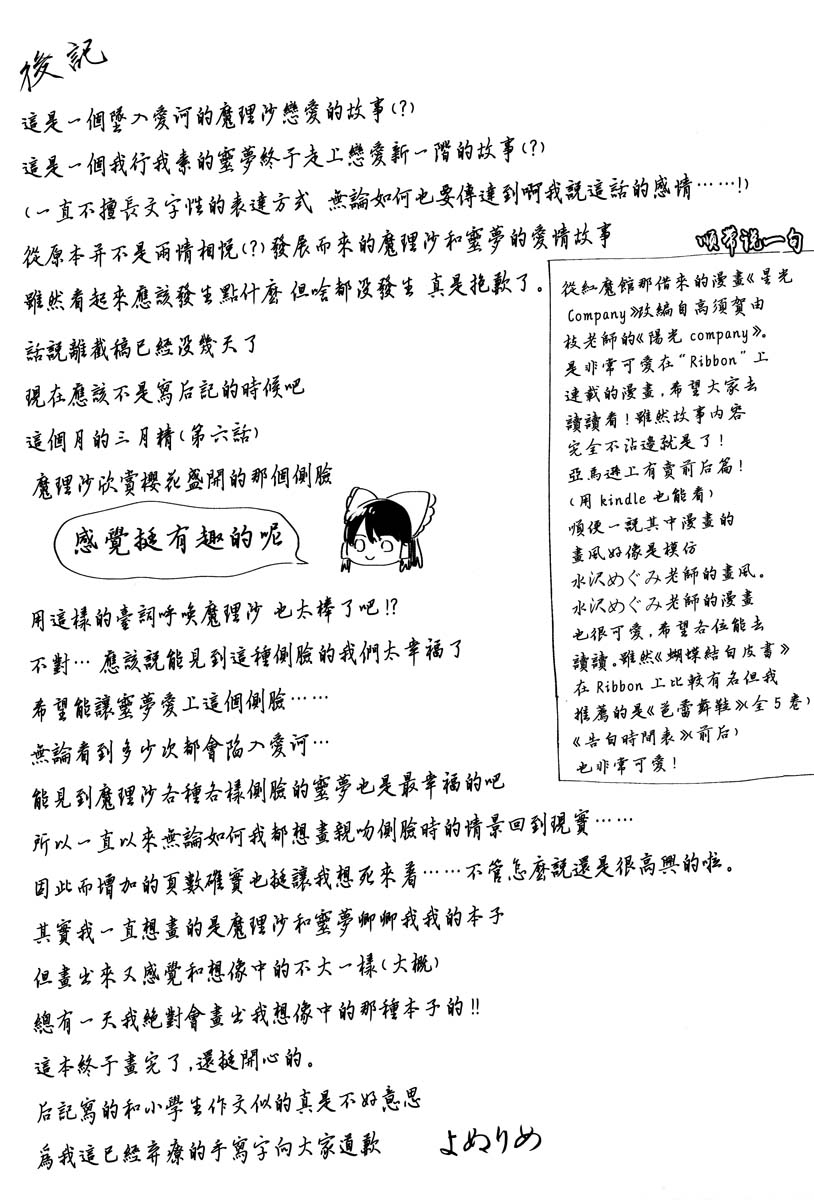 後記
這是一個墜入愛河的魔理沙戀愛的故事(?)
這是一個我行我素的靈夢終于走上戀愛新一階的故事(?)
(一直不擅長文字性的表達方式 無論如何也要傳達到啊我説這話的感情……!)
從原本并不是兩情相悅(?)發展而來的魔理沙和靈夢的愛情故事
雖然看起來應該發生點什麼 但啥都没發生 真是抱歉了。
話説離截稿已經没幾天了
現在應該不是寫后記的時候吧
這個月的三月精(第六話)
魔理沙欣賞櫻花盛開的那個側臉
感覺挺有趣的呢
用這樣的臺詞呼喚魔理沙 也太棒了吧!?
不對… 應該説能見到這種側臉的我們太幸福了
希望能讓靈夢愛上這個側臉……
無論看到多少次都會陷入愛河…
能見到魔理沙各種各樣側臉的靈夢也是最幸福的吧
所以一直以來無論如何我都想畫親吻側臉時的情景回到現實……
因此而增加的頁數確實也挺讓我想死來着……不管怎麼説還是很高興的啦。
其實我一直想畫的是魔理沙和靈夢卿卿我我的本子
但畫出來又感覺和想像中的不大一樣(大概)
總有一天我絶對會畫出我想像中的那種本子的!!
這本終于畫完了,還挺開心的。
后記寫的和小學生作文似的真是不好意思
爲我這已經弃療的手寫字向大家道歉
よぬりめ
順帶说一句
從紅魔館那借來的漫畫《星光
Company》改編自高須賀由
枝老師的《陽光company》。
是非常可愛在“Ribbon”上
連載的漫畫,希望大家去
讀讀看!雖然故事内容
完全不沾邊就是了!
亞馬遜上有賣前后篇!
(用kindle也能看)
順便一説其中漫畫的
畫風好像是模仿
水沢めぐみ老師的畫風。
水沢めぐみ老師的漫畫
也很可愛,希望各位能去
讀讀。雖然《蝴蝶結白皮書》
在Ribbon上比較有名但我
推薦的是《芭蕾舞鞋》(全5卷)
《告白時間表》(前后)
也非常可愛!